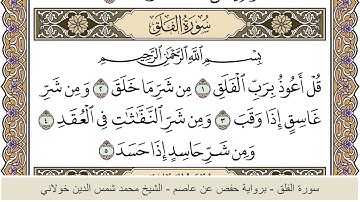 سُورَةُ الفَلَقِ
بِسْمِ اللَّهِ الرَّحْمَٰنِ الرَّحِيمِ
قُلْ أَعُوذُ بِرَبِّ الْفَلَقِ ١ مِن شَرِّ مَا خَلَقَ ٢ وَمِن شَرِّ
غَاسِقٍ إِذَا وَقَبَ ٣ وَمِن شَرِّ النَّفَّاثَاتِ فِي الْعُقَدِ ٤
وَمِن شَرِّ حَاسِدٍ إِذَا حَسَدَ ٥
سورة الفلق - برواية حفص عن عاصم - الشيخ محمد شمس الدين خولاني